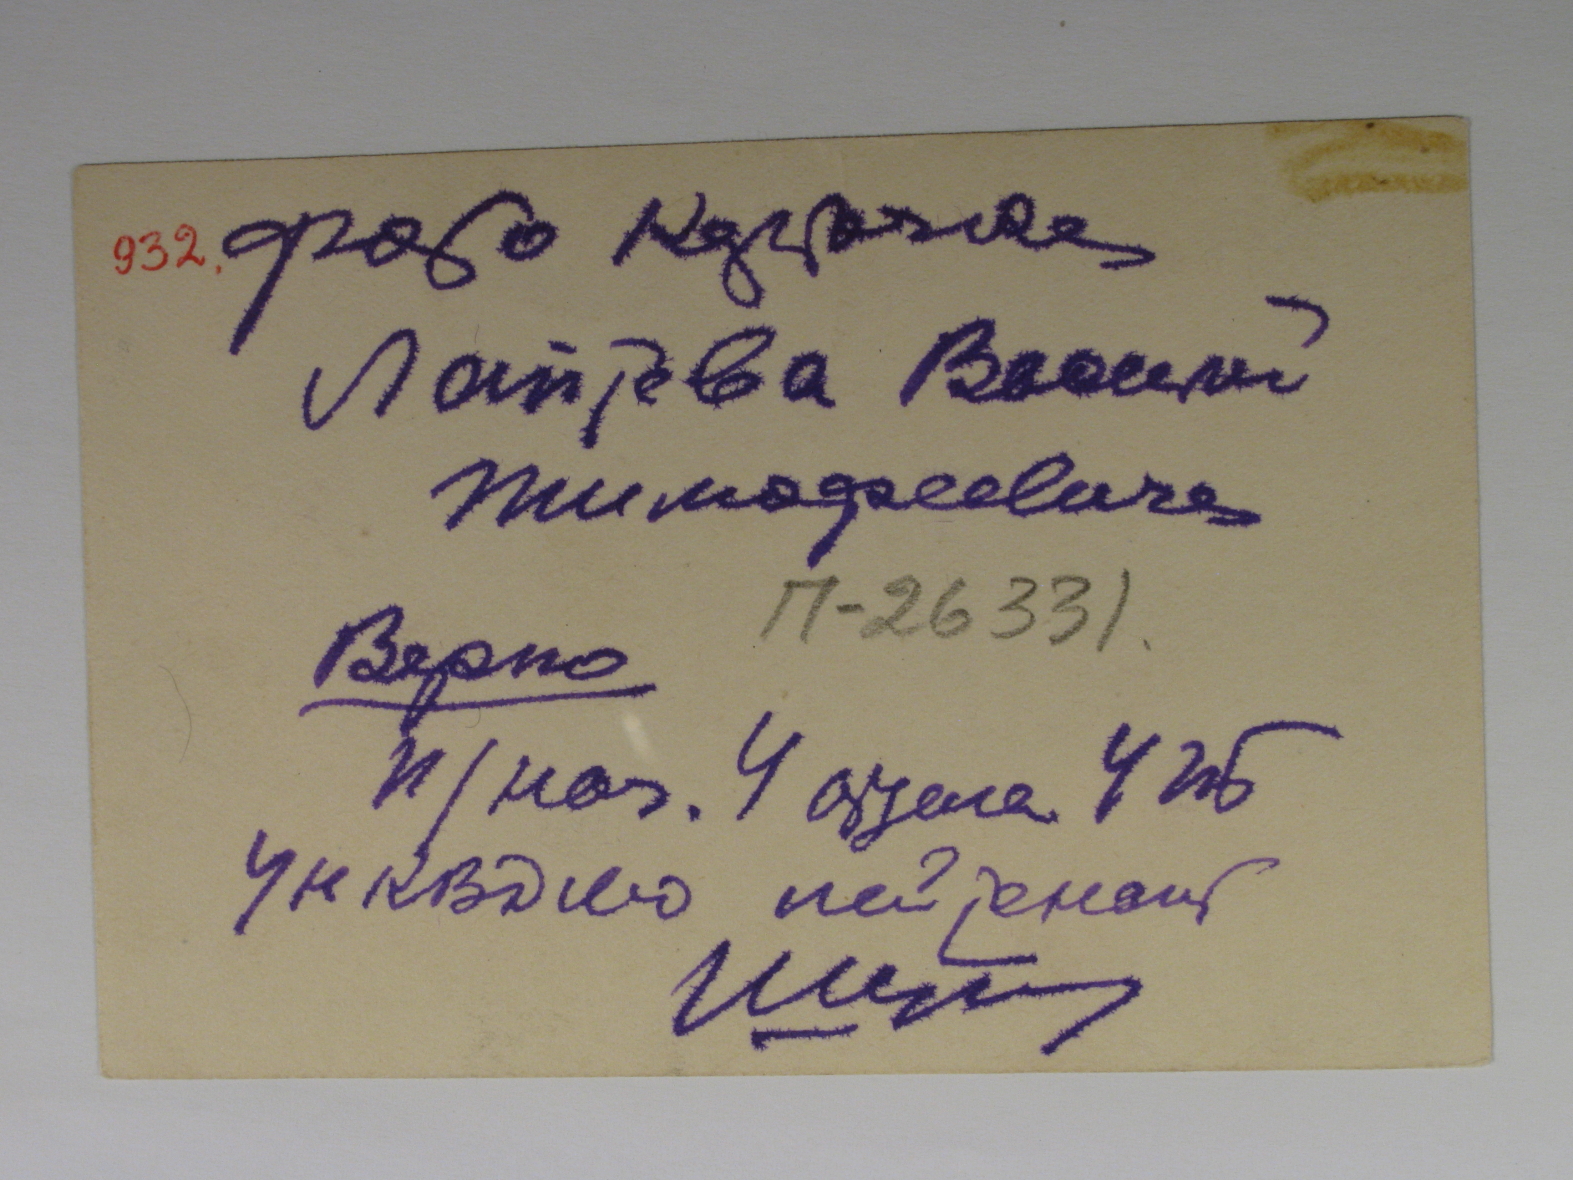 932. фото
Лаптева Васил
Тимофеевича
П-26331.
Верно
п/нач. 4 отдела УГБ
УНКВДМО лейтенант